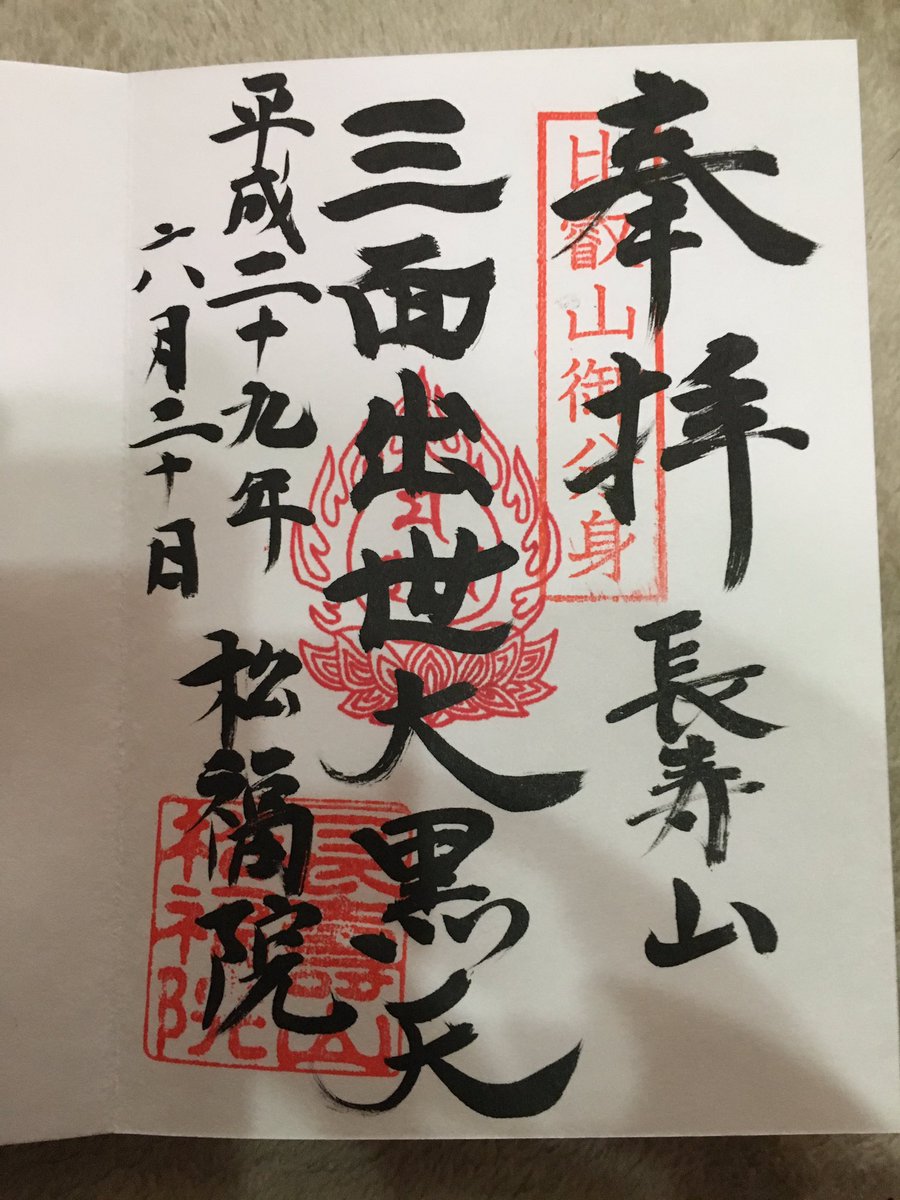 奉拝
長寿山
比叡山御分身
三面出世大黒天
平成二十九年
六月二十日
松福院
長壽山
松福院